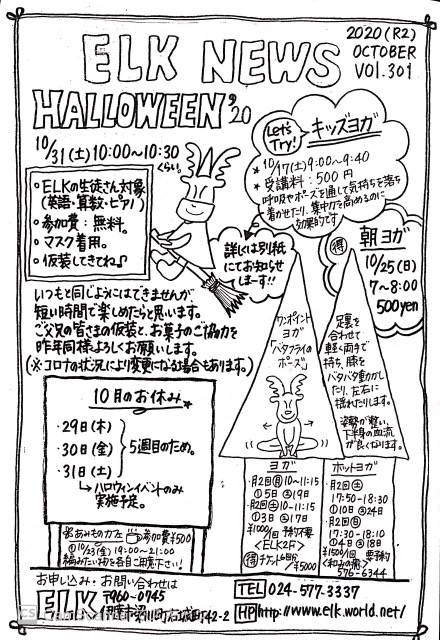 2020(R2)
OCTOBER
VOL.301
ELK NEWS
HALLOWEEN '20
10/31(土)10:00~10:30
くらい。
・ELKの生徒さん対象
(英語・算数・ピアノ)
・参加費：無料。
・マスク着用。
・仮装してきてね♪
詳しくは別紙
にてお知らせ
しまーす!!
いつもと同じようにはできませんが、
短い時間で楽しめたらと思います。
ご父兄の皆さまの仮装と、お菓子のご協力を
昨年同様よろしくお願いします。
(※コロナの状況により変更になる場合もあります。)
Let's Try!
キッズヨガ
*10/17(土)9:00~9:40
*受講料：500円
呼吸やポーズを通して気持ちを落ち
着かせたり、集中力を高めるのに
効果的です
得
朝ヨガ
10/25(日)
7~8:00
500yen
ワンポイント
ヨガ
「バタフライの
ポーズ」
足裏を
合わせて
軽く両手で
持ち、膝を
バタバタ動かし
たり、左右に
揺れたりします。
姿勢が整い、
下半身の血流
が良くなります。
10月のお休み
・29日(木)
・30日(金)
・31日(土)
5週目のため。
↳ハロウィンイベントのみ
実施予定。
あみもの力
参加費¥500
①10/23(金)19:00~21:00
編みたい物を各自ご用意下さい!
ヨガ
・月2回(月)10~11:15
①5日 ②19日
・月2回(土)10~11:15
①3日 ②17日
¥1000/1回 予約不要
<ELK2F>
得 チケット6回
/¥5000
ホットヨガ
・月2回(土)
17:50-18:50
①10日 ②24日
・月2回(日)
17:30-18:30
①4日 ②18日
¥1500/1回 要予約
576-6344
お申し込み・お問い合わせは
ELK
〒960-0745
42-2
TEL 024-577-3337
HP http://www.elk.world.net/